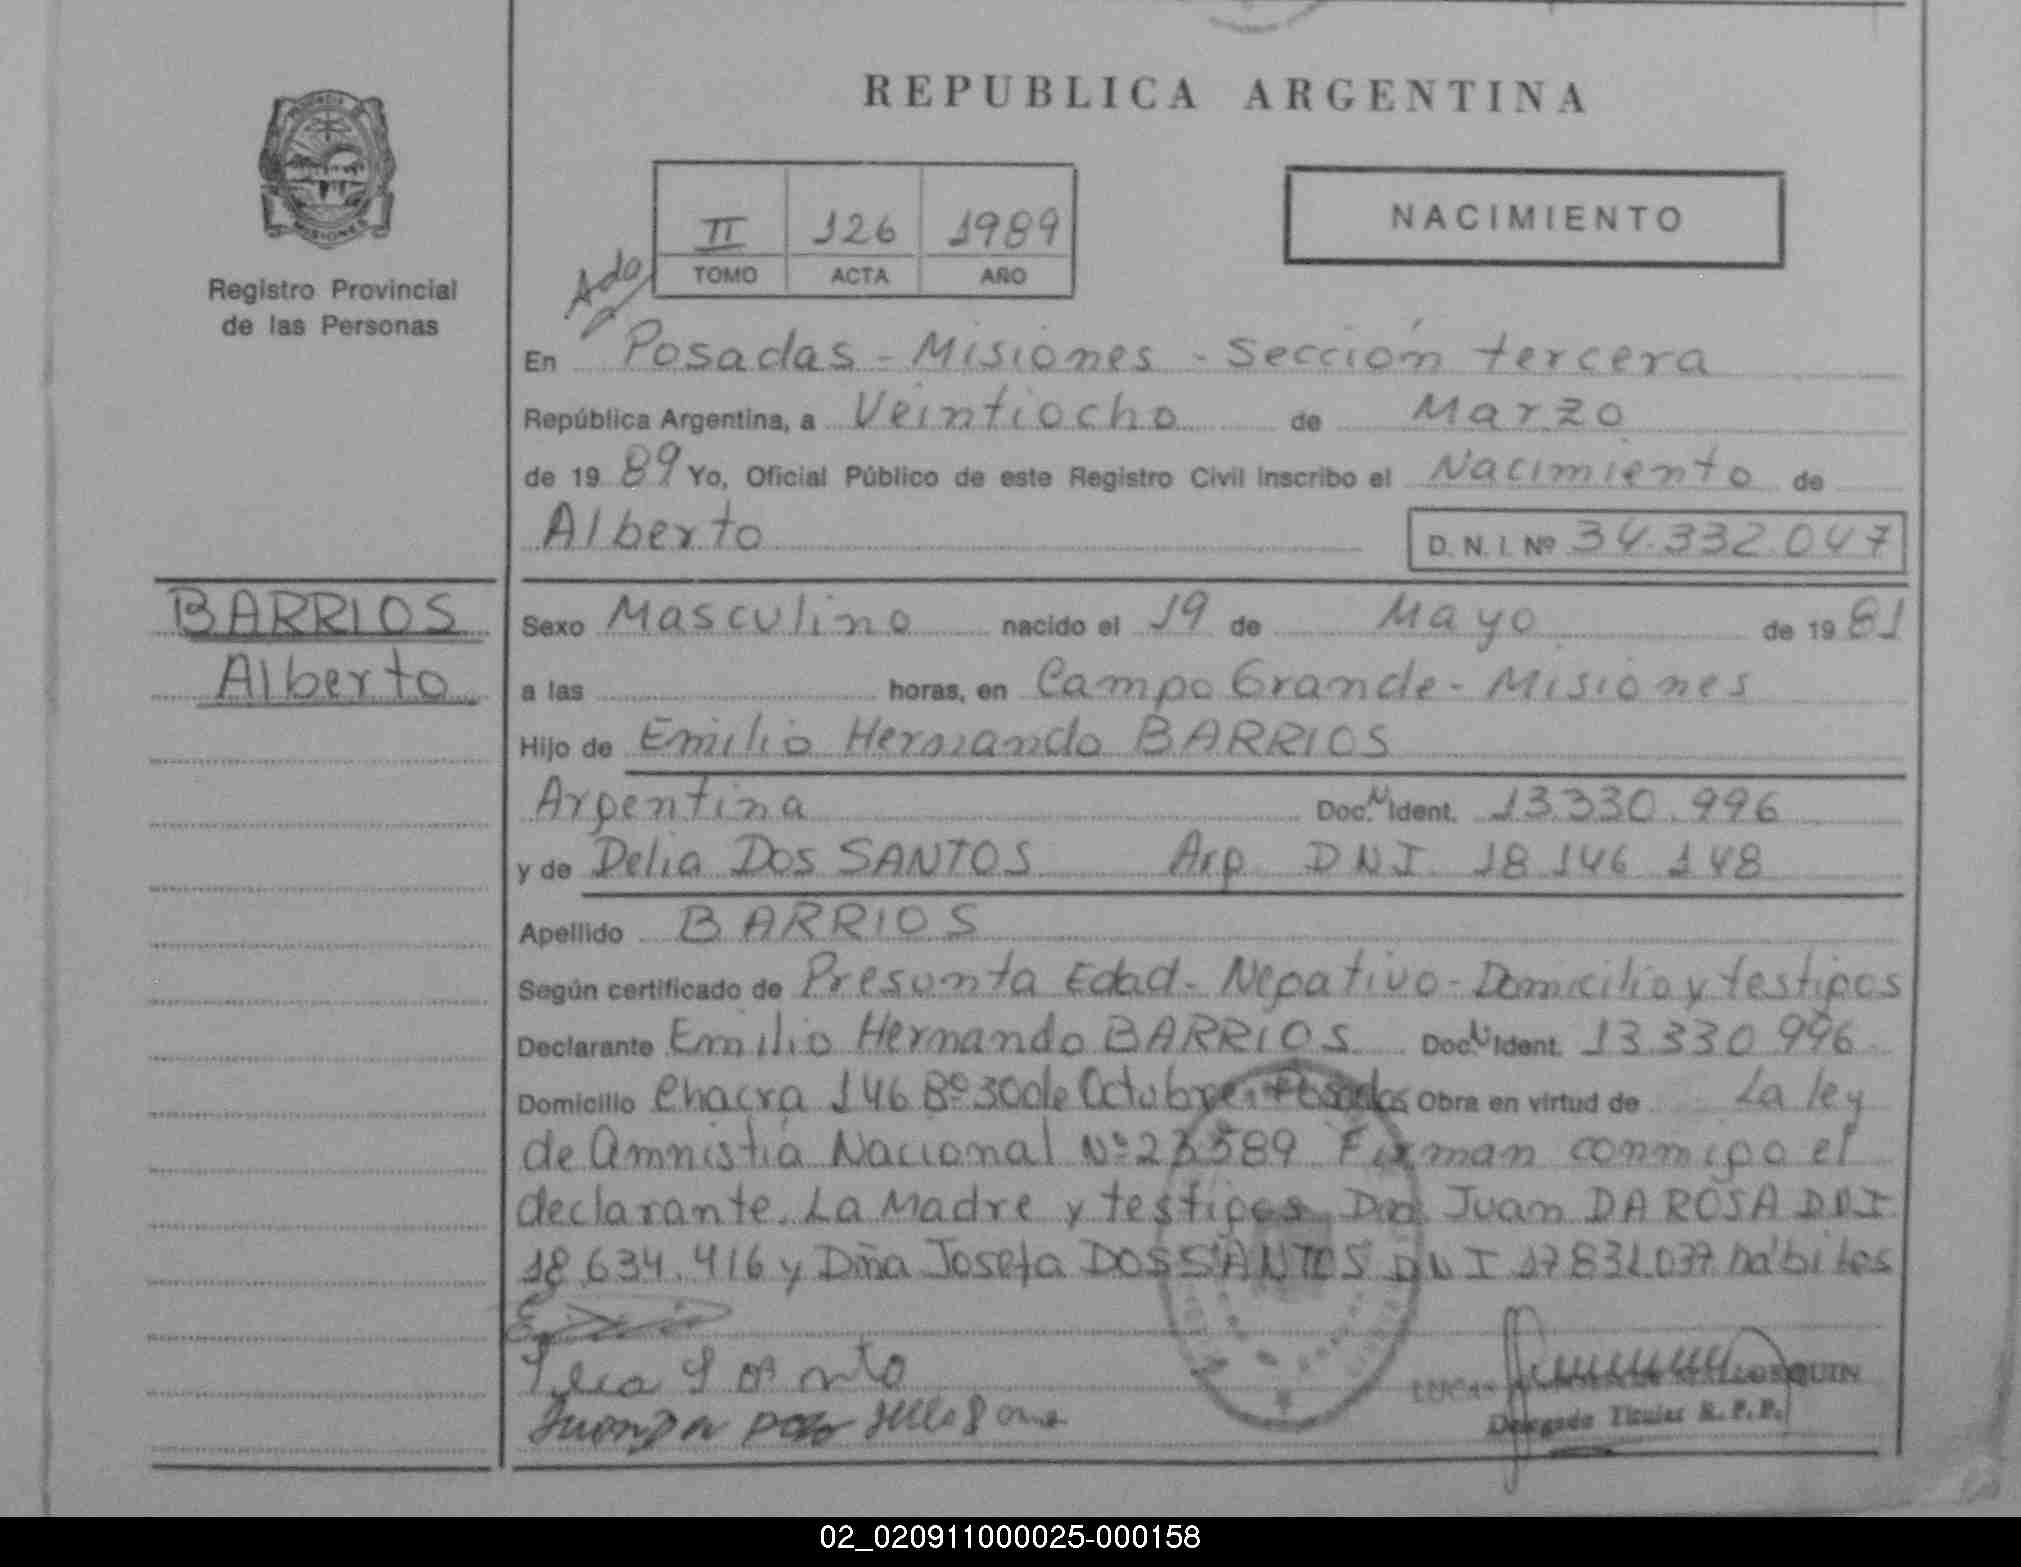 REPUBLICA ARGENTINA
PROVINCIA DE MISIONES
Registro Provincial
de las Personas
II 126 1989
TOMO ACTA AÑO
NACIMIENTO
Ado
En Posadas - Misiones - Sección tercera
República Argentina, a Veintiocho de Marzo
de 19 89 Yo, Oficial Público de este Registro Civil inscribo el Nacimiento de
Alberto D. N. I. Nº 34.332.047
BARRIOS
Alberto
Sexo Masculino nacido el 19 de Mayo de 19 81
a las horas, en Campo Grande - Misiones
Hijo de Emilio Hernando BARRIOS
Argentina Doc. N Ident. 13.330.996
y de Delia Dos SANTOS Arg. DNI. 18 146 148
Apellido BARRIOS
Según certificado de Presunta Edad - Negativo - Domicilio y testigos
Declarante Emilio Hernando BARRIOS Doc. N Ident. 13.330 996
Domicilio Chacra 146 Bº 30 de Octubre Posadas Obra en virtud de La ley
de Amnistia Nacional Nº 23589 Firman conmigo el
declarante. La Madre y testigos Don Juan DA ROSA DNI
18.634.416 y Dña Josefa DOS SANTOS DNI 17831.037 hábiles
Delegado Titular R. P. P.
02_020911000025-000158